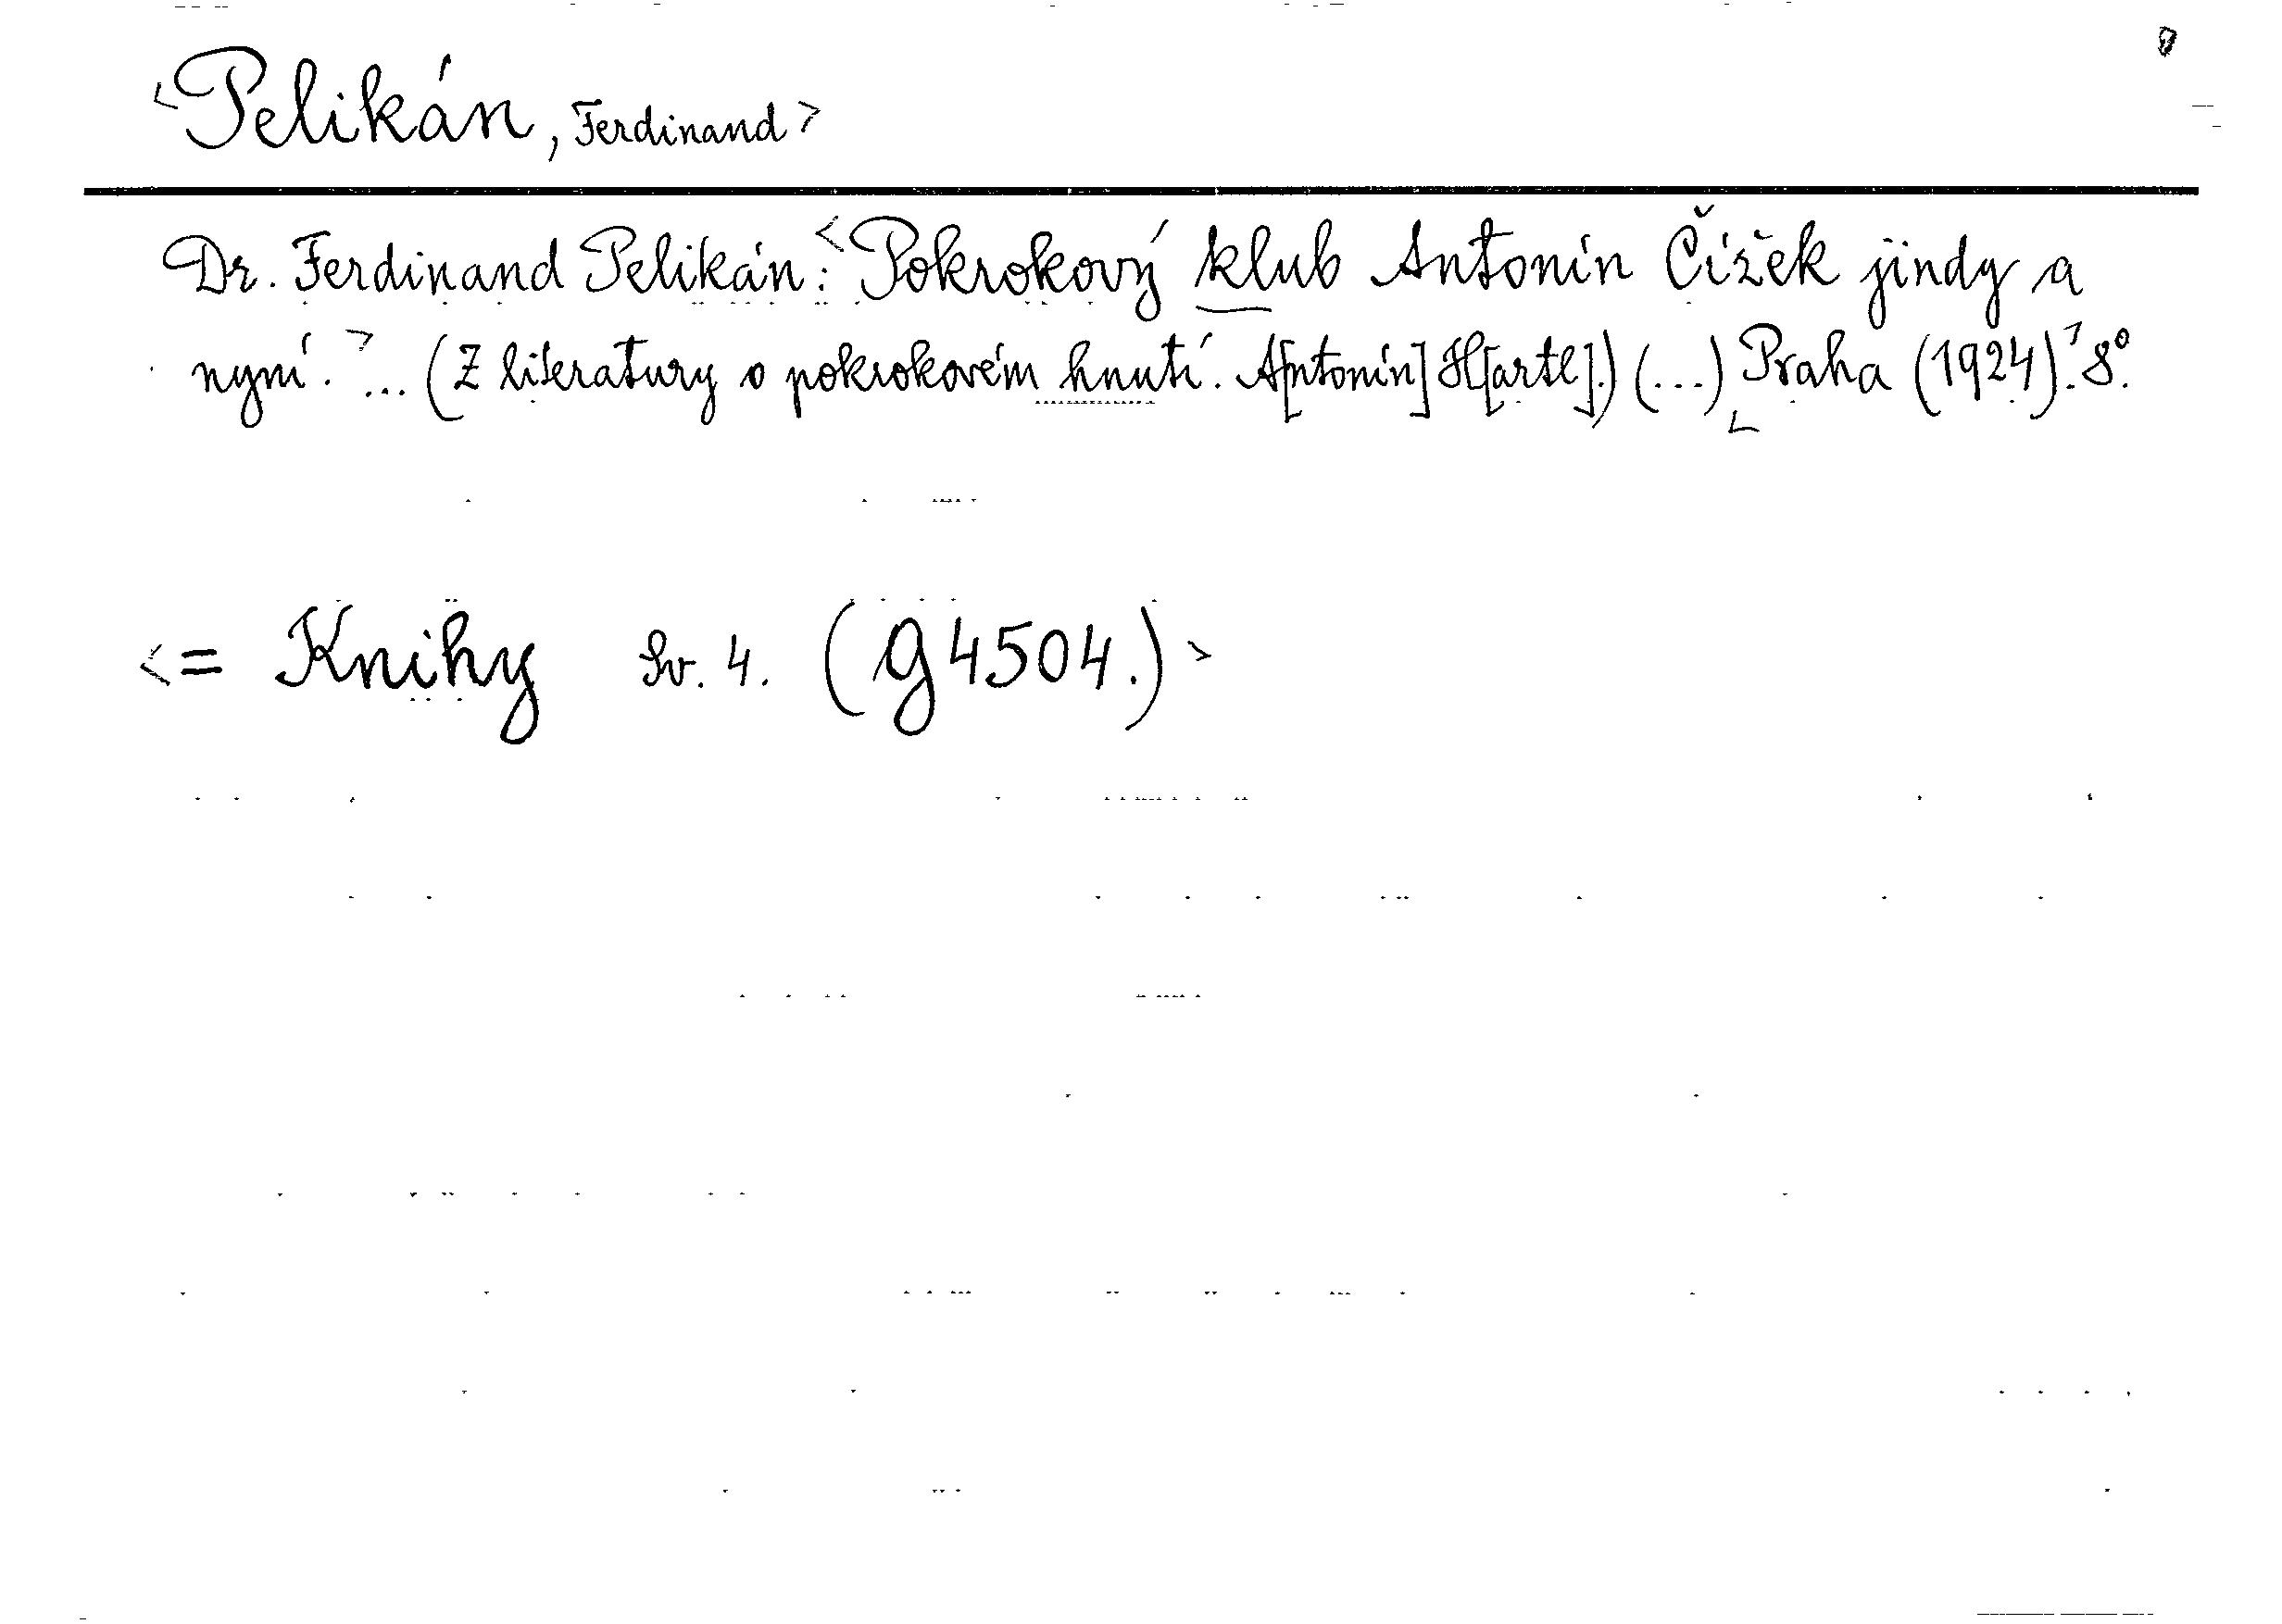 <Pelikán, Ferdinand>
Dr. Ferdinand Pelikán: <Pokrokový klub Antonín Čížek jindy a
nyní.> ... (Z literatury o pokrokovém hnutí. A[ntonín] H[artl].) (...) <Praha (1924).> 8°.
<= Knihy Sv. 4. (g 4504.)>